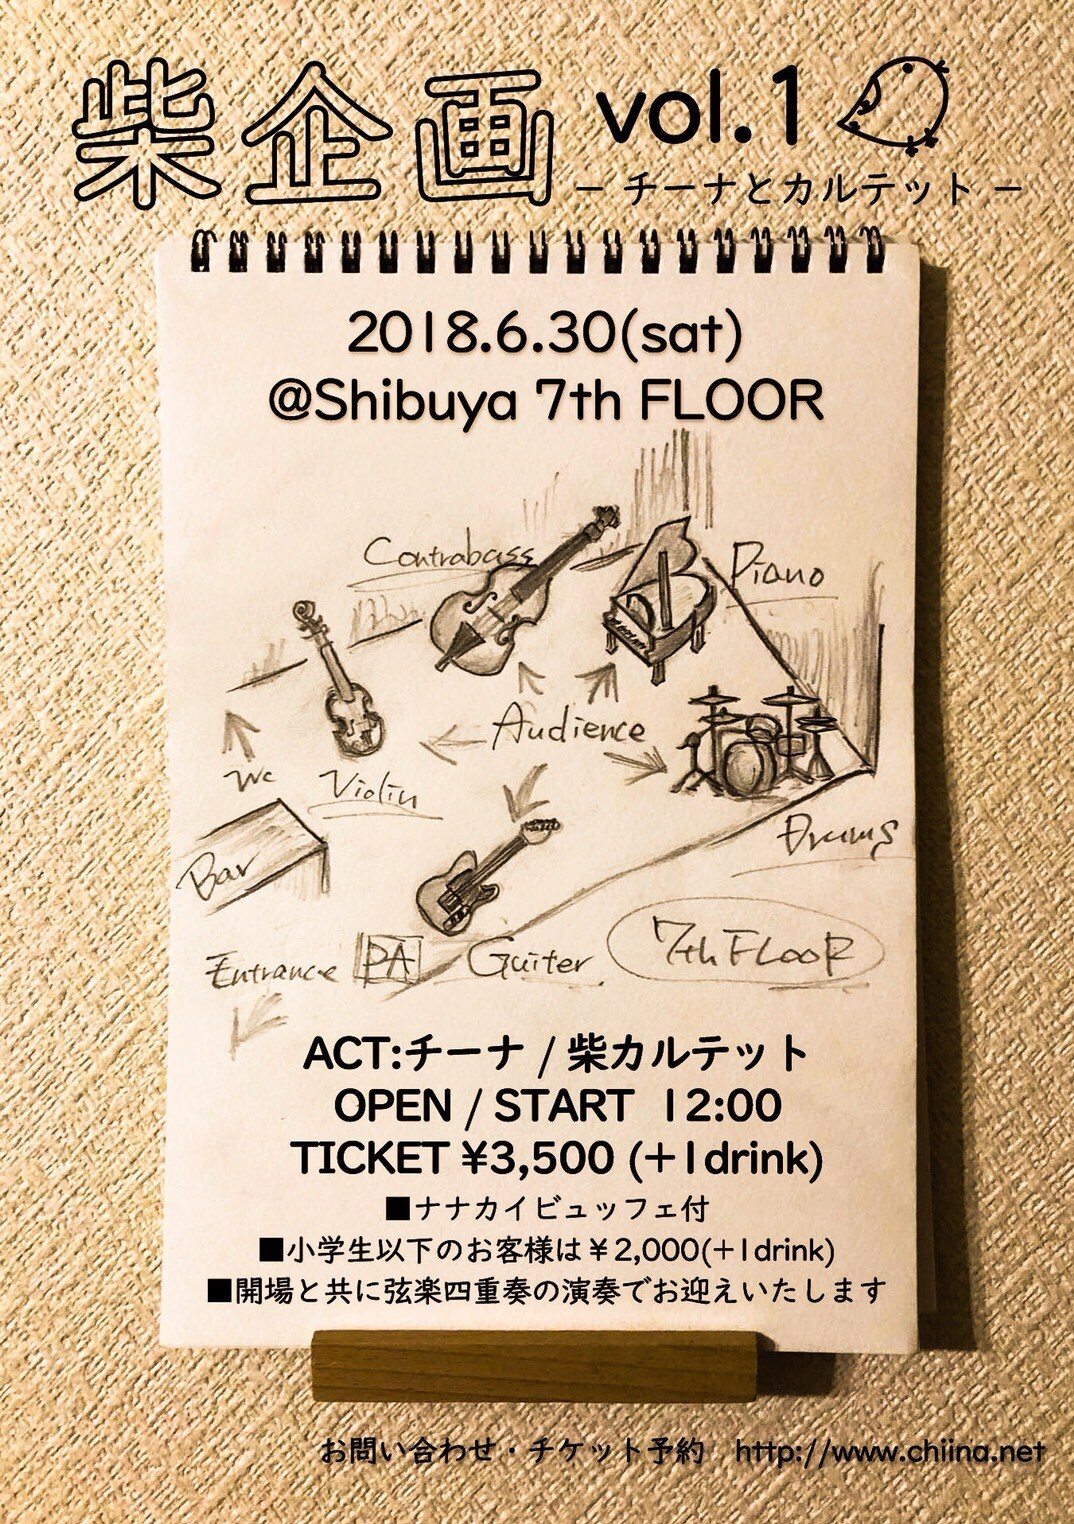 柴企画 vol.1
− チーナとカルテット −
2018.6.30(sat)
@Shibuya 7th FLOOR
Contrabass
Piano
Audience
Wc
Violin
Drums
Bar
Entrance
PA
Guiter
7th FLooR
ACT:チーナ / 柴カルテット
OPEN / START 12:00
TICKET ¥3,500 (+1drink)
■ナナカイビュッフェ付
■小学生以下のお客様は¥2,000(+1drink)
■開場と共に弦楽四重奏の演奏でお迎えいたします
お問い合わせ・チケット予約 http://www.chiina.net